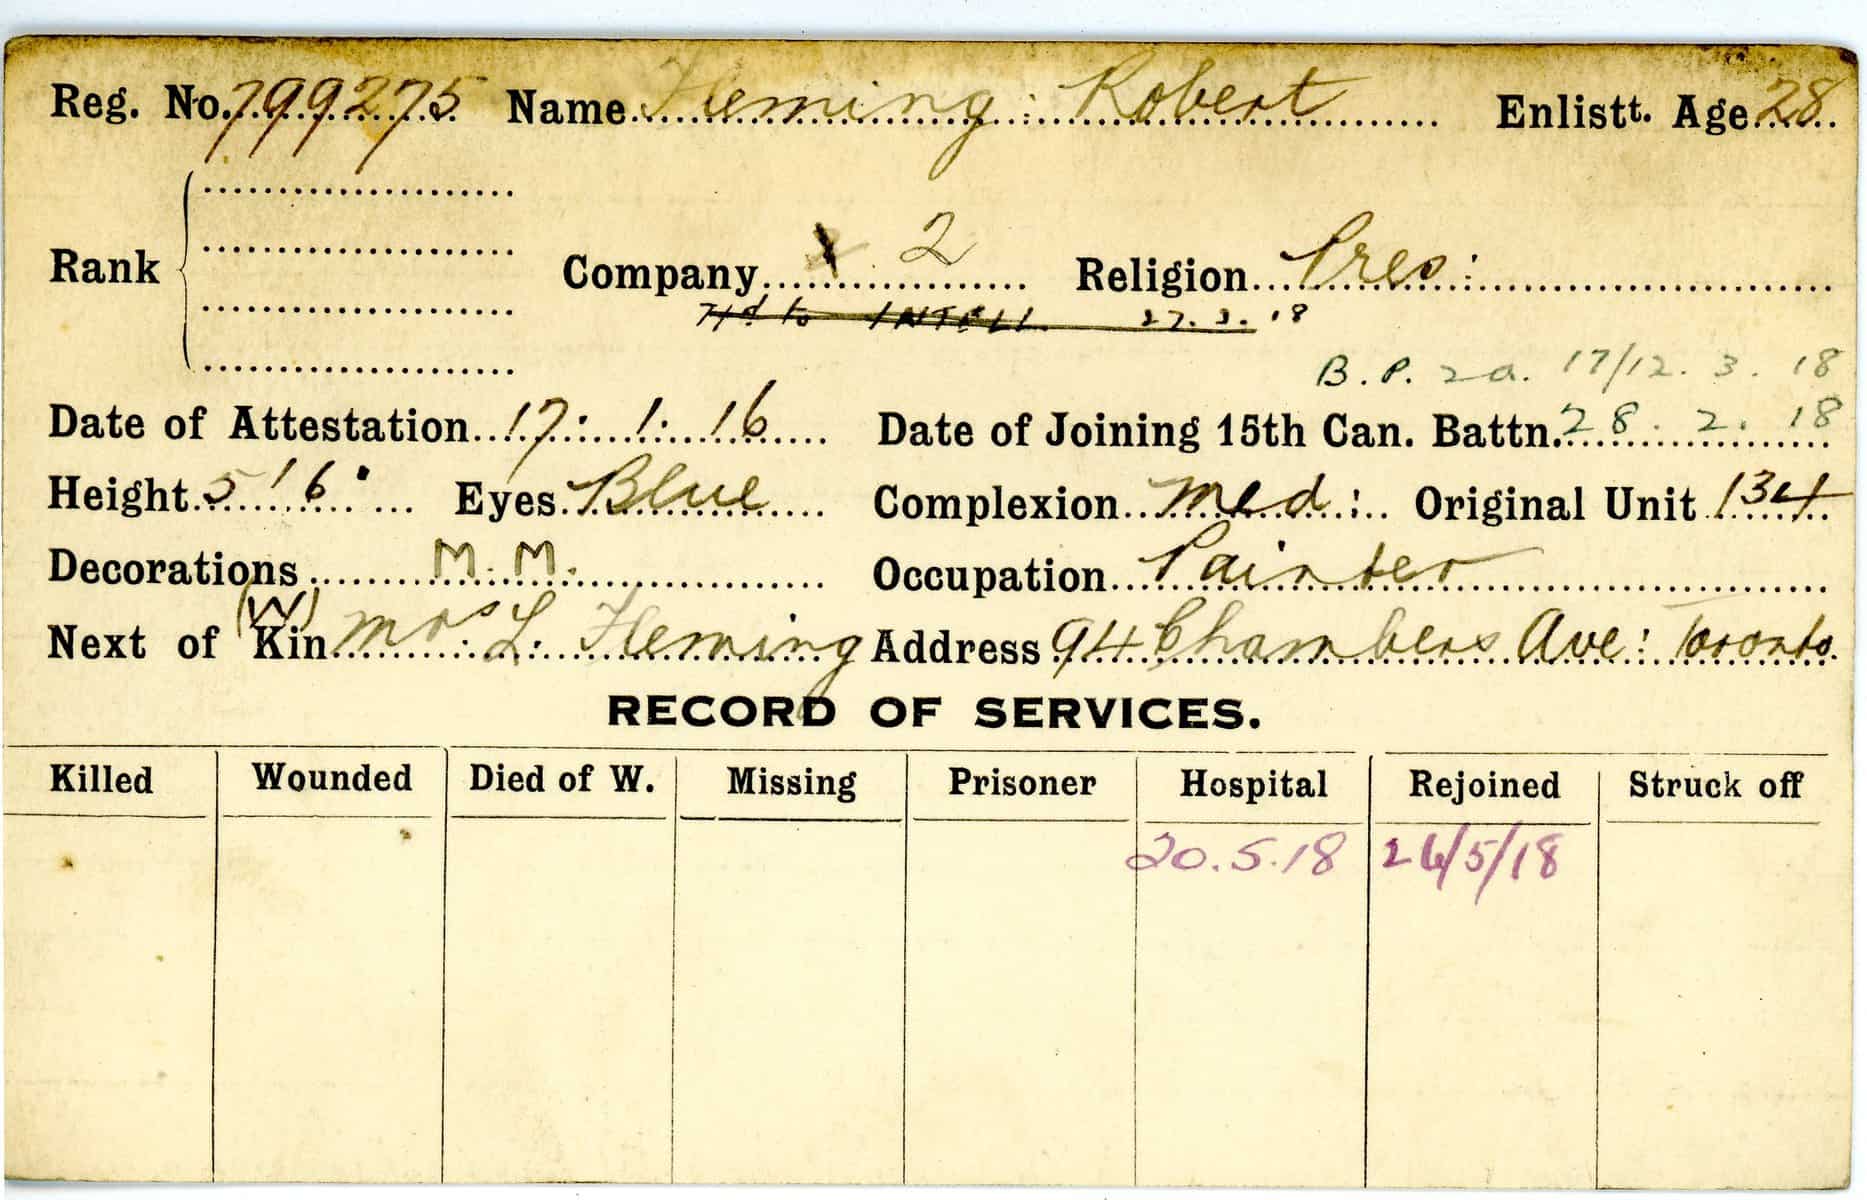 Reg. No. 799275 Name Fleming : Robert Enlistt. Age 28
Rank Company 2 Religion Pres :
Tfd to INTELL 27. 3. 18
B. P. 2a. 17/12. 3. 18
Date of Attestation 17 : 1 : 16 Date of Joining 15th Can. Battn. 28. 2. 18
Height 5' 6" Eyes Blue Complexion Med : Original Unit 134
Decorations M. M. Occupation Painter
(W)
Next of Kin Mrs L. Fleming Address 94 Chambers Ave : Toronto
RECORD OF SERVICES.
Killed Wounded Died of W. Missing Prisoner Hospital Rejoined Struck off
20. 5. 18 26/5/18